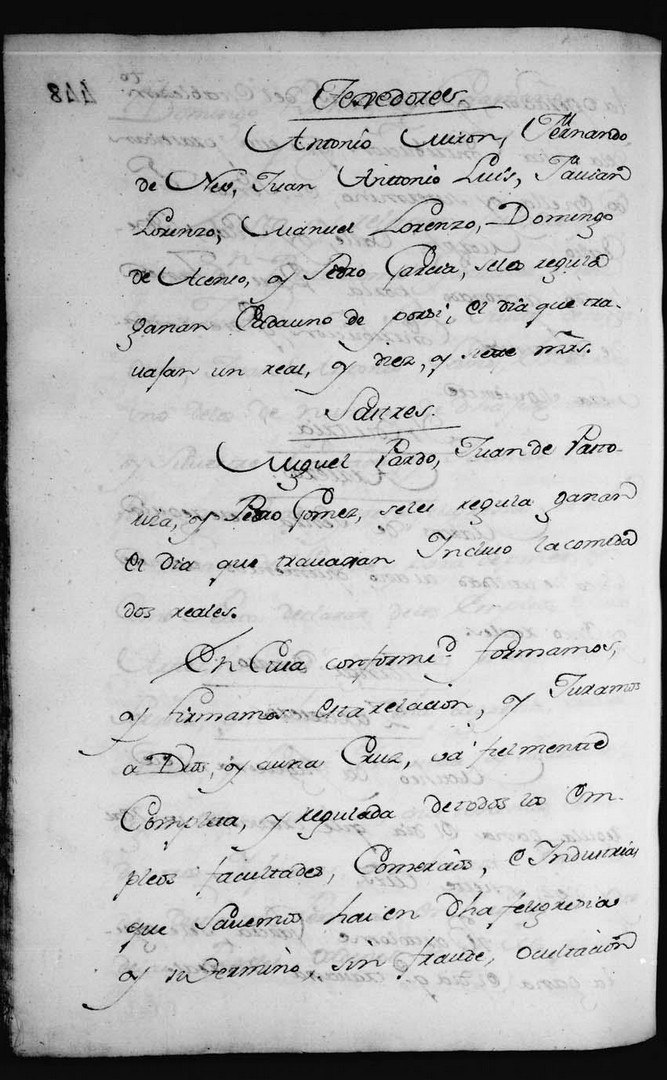 Texedores.
Antonio Miron, Fernando
de Neu, Juan Anttonio Luis, Favian
Lorenzo, Manuel Lorenzo, Domingo
de Acevo, y Pedro Garcia, seles regula
ganan Cadauno de porsi, el dia que tra-
vajan un real, y diez, y siete mrs.
Sastres.
Miguel Pardo, Juan de Pasto-
riza, y Pedro Gomez, seles regula ganan
el dia que travajan Incluso lacomida
dos reales.
En Cuia conformd. formamos,
y firmamos esta relacion, y Juramos
a Dios, y auna Cruz, vá fielmente
Completa, y regulada detodos los Em-
pleos facultades, Comercios, e Industrias
que Savemos hai en dha feligresia
y su termino, sin fraude, ocultacion